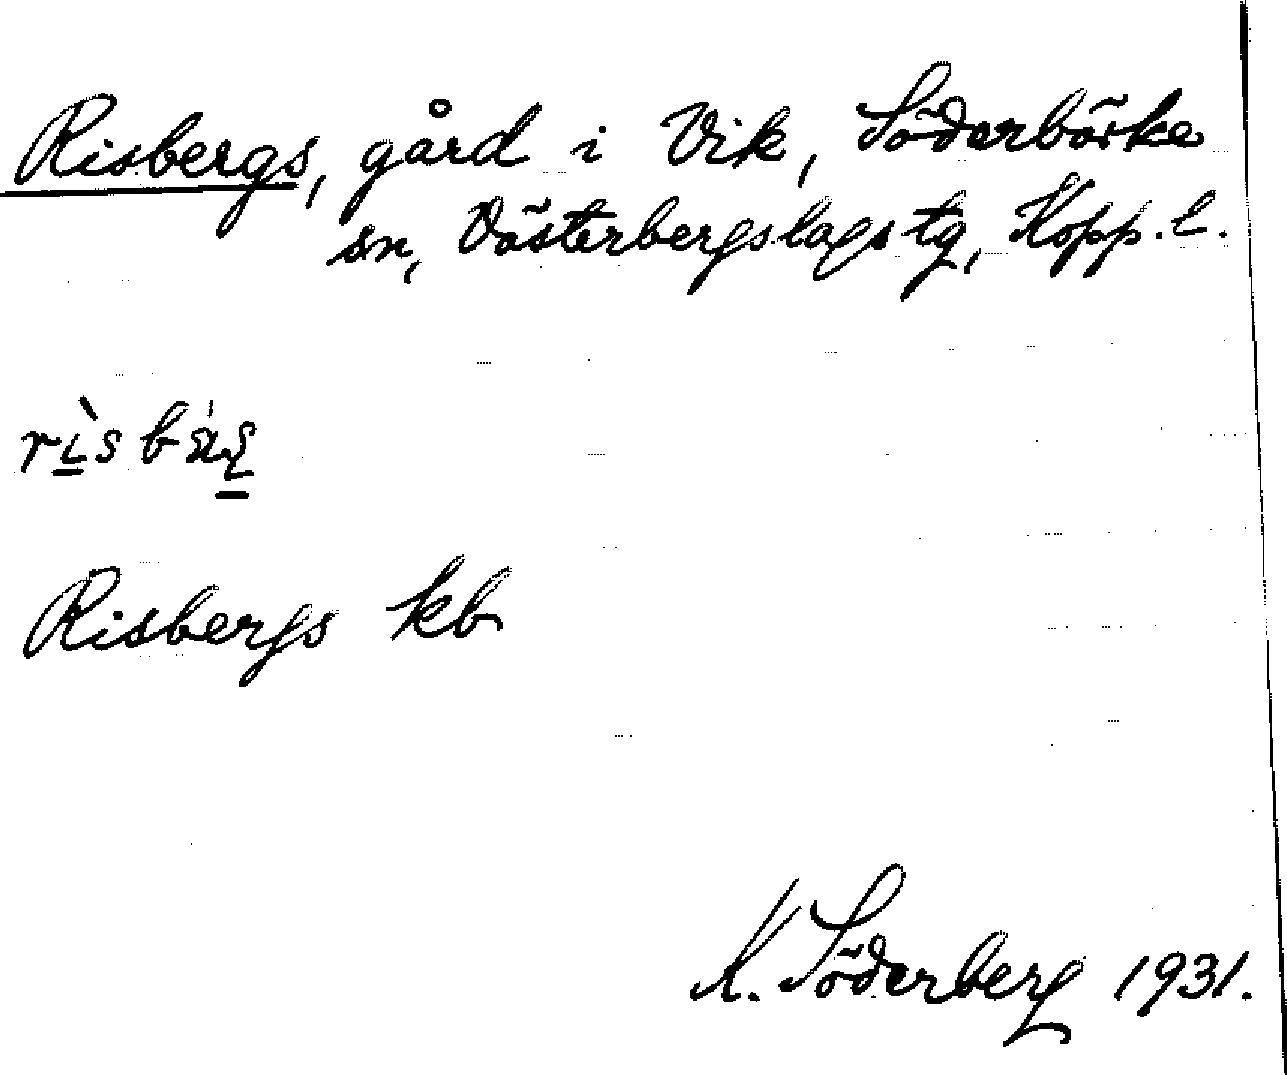 Risbergs, gård i Vik, Söderbärke
sn, Västerbergslags tg, Kopp. l.
Risbergs kb
Söderberg 1931.